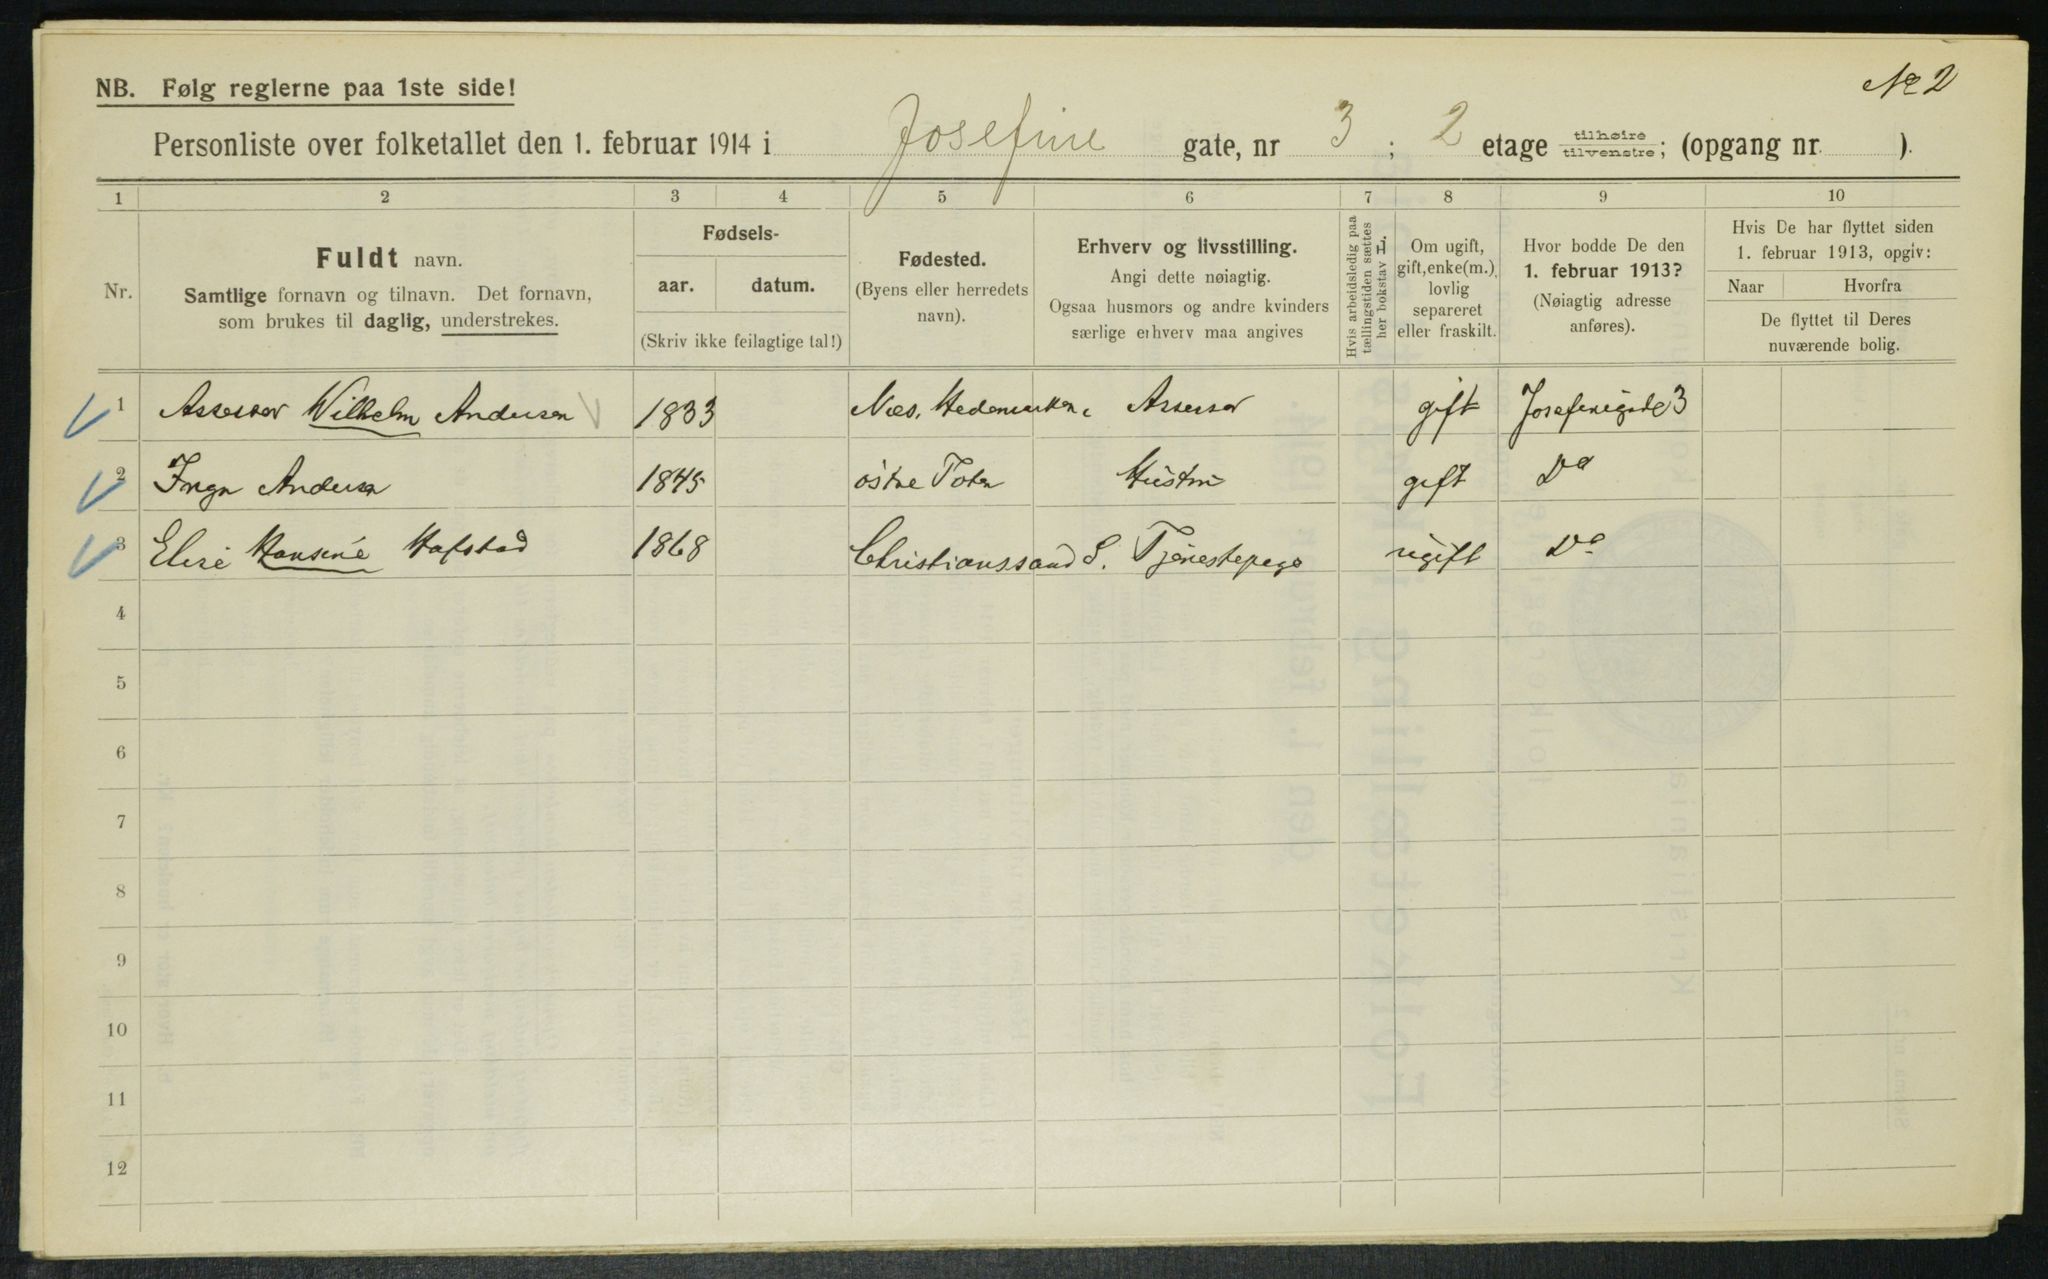 NB. Følg reglerne paa 1ste side!
№ 2
Personliste over folketallet den 1. februar 1914 i Josefine gate, nr 3; 2 etage tilhøire tilvenstre; (opgang nr. ).
1 2 3 4 5 6 7 8 9 10
Nr.
Fuldt navn.
Samtlige fornavn og tilnavn. Det fornavn,
som brukes til daglig, understrekes.
Fødsels-
aar. datum.
(Skriv ikke feilagtige tal!)
Fødested.
(Byens eller herredets
navn).
Erhverv og livsstilling.
Angi dette nøiagtig.
Ogsaa husmors og andre kvinders
særlige erhverv maa angives
Hvis arbeidsledig paa
tællingstiden sættes
her bokstav L.
Om ugift,
gift, enke(m.),
lovlig
separeret
eller fraskilt.
Hvor bodde De den
1. februar 1913?
(Nøiagtig adresse
anføres).
Hvis De har flyttet siden
1. februar 1913, opgiv:
Naar Hvorfra
De flyttet til Deres
nuværende bolig.
1 Assessor Wilhelm Andersen 1833 Næs, Hedemarken Assessor gift Josefinegade 3
2 Inga Andersen 1845 østre Toten Hustru gift Do
3 Elise Hansine Hafstad 1868 Christianssand S. Tjenestepige ugift Do
4
5
6
7
8
9
10
11
12